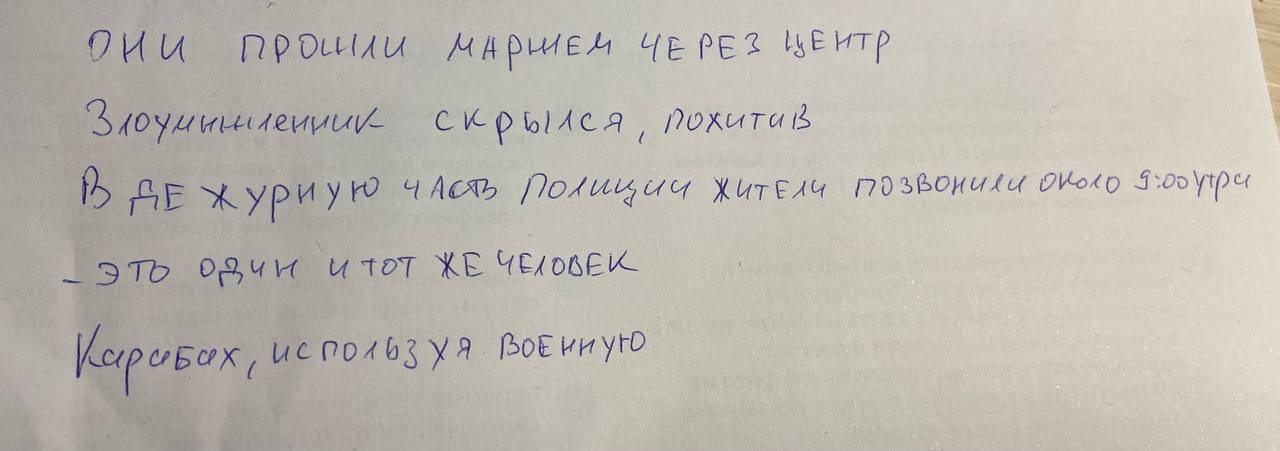 ОНИ ПРОШЛИ МАРШЕМ ЧЕРЕЗ ЦЕНТР
Злоумышленник скрылся, похитив
В ДЕЖУРНУЮ ЧАСТЬ ПОЛИЦИИ ЖИТЕЛИ ПОЗВОНИЛИ ОКОЛО 9:00 УТРА
- ЭТО ОДИН И ТОТ ЖЕ ЧЕЛОВЕК
Карабах, используя военную